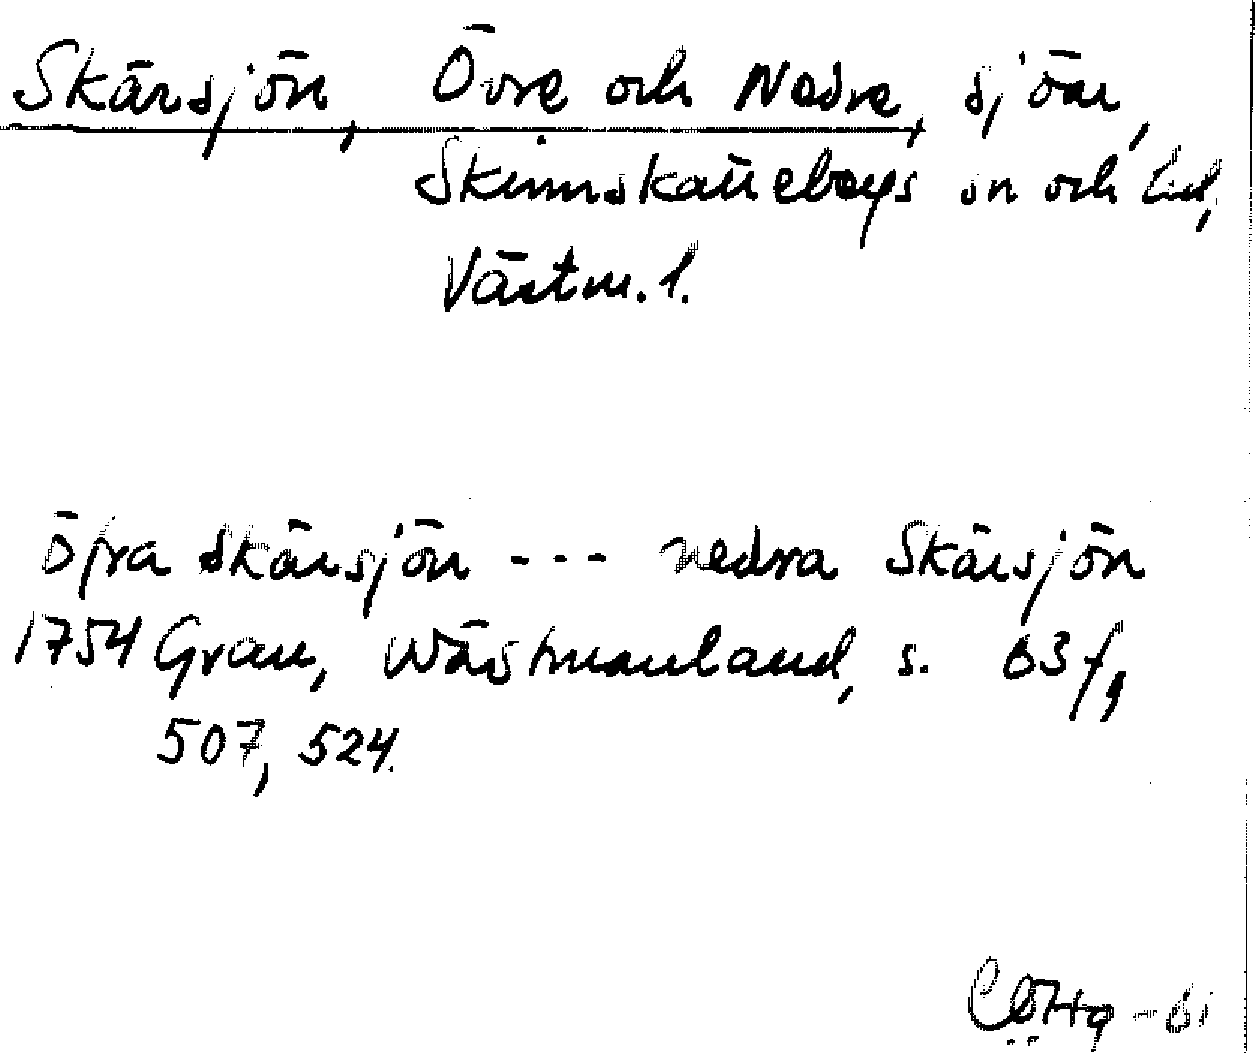 Skärsjön, Övre och Nedre, sjöar,
Skinnskattebergs sn och hd,
Västm. l.
öfra Skärsjön --- nedra Skärsjön
1754 Grau, Wästmanland, s. 63 f,
507, 524.
-61